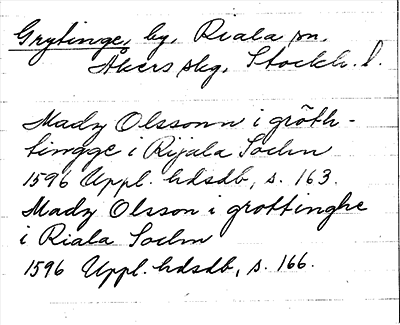 Grytinge, by, Riala sn,
Åkers skg, Stockh. l.
Madz Olssonn i grõth-
tingge i Rijala Sochn
1596 Uppl. hdsdb, s. 163.
Madz Olsson i grottinghe
i Riala Sochn
1596 Uppl. hdsdb, s. 166.